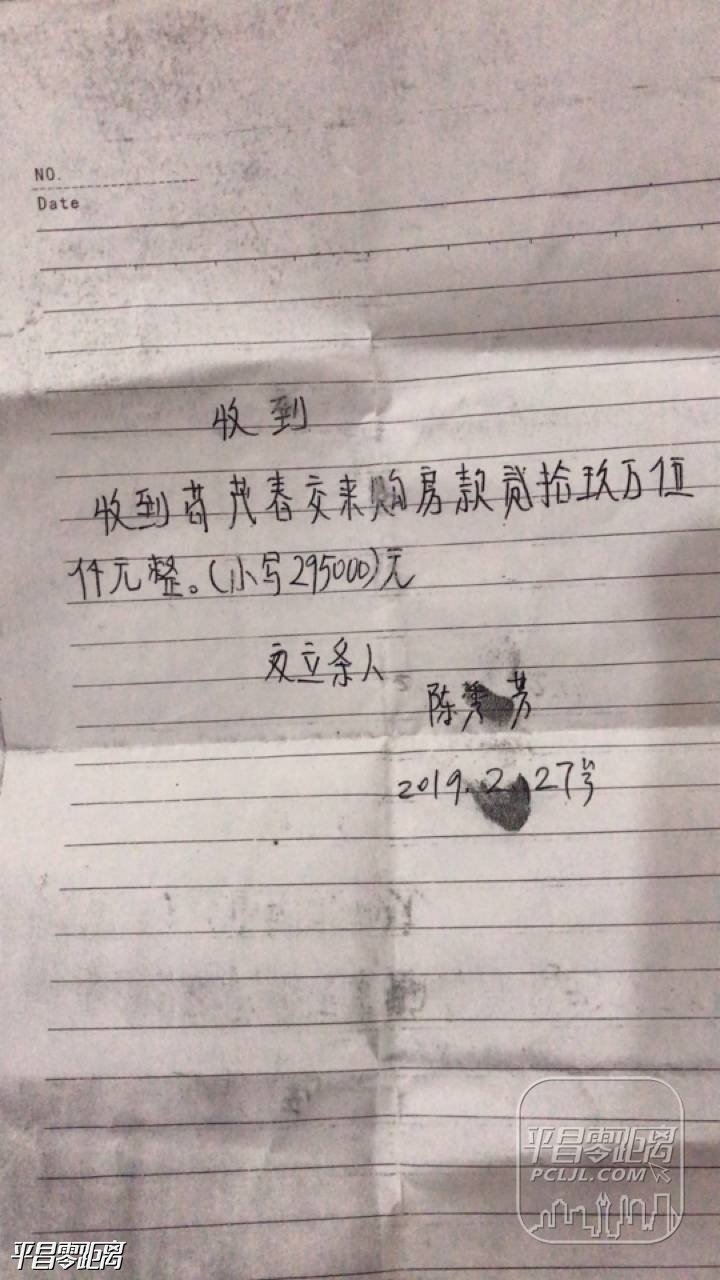 NO.
Date
收到
收到苟茂春交来购房款贰拾玖万伍
仟元整。(小写295000)元
立条人
陈秀芳
2019.2.27号
平昌零距离
PCLJL.COM
平昌零距离